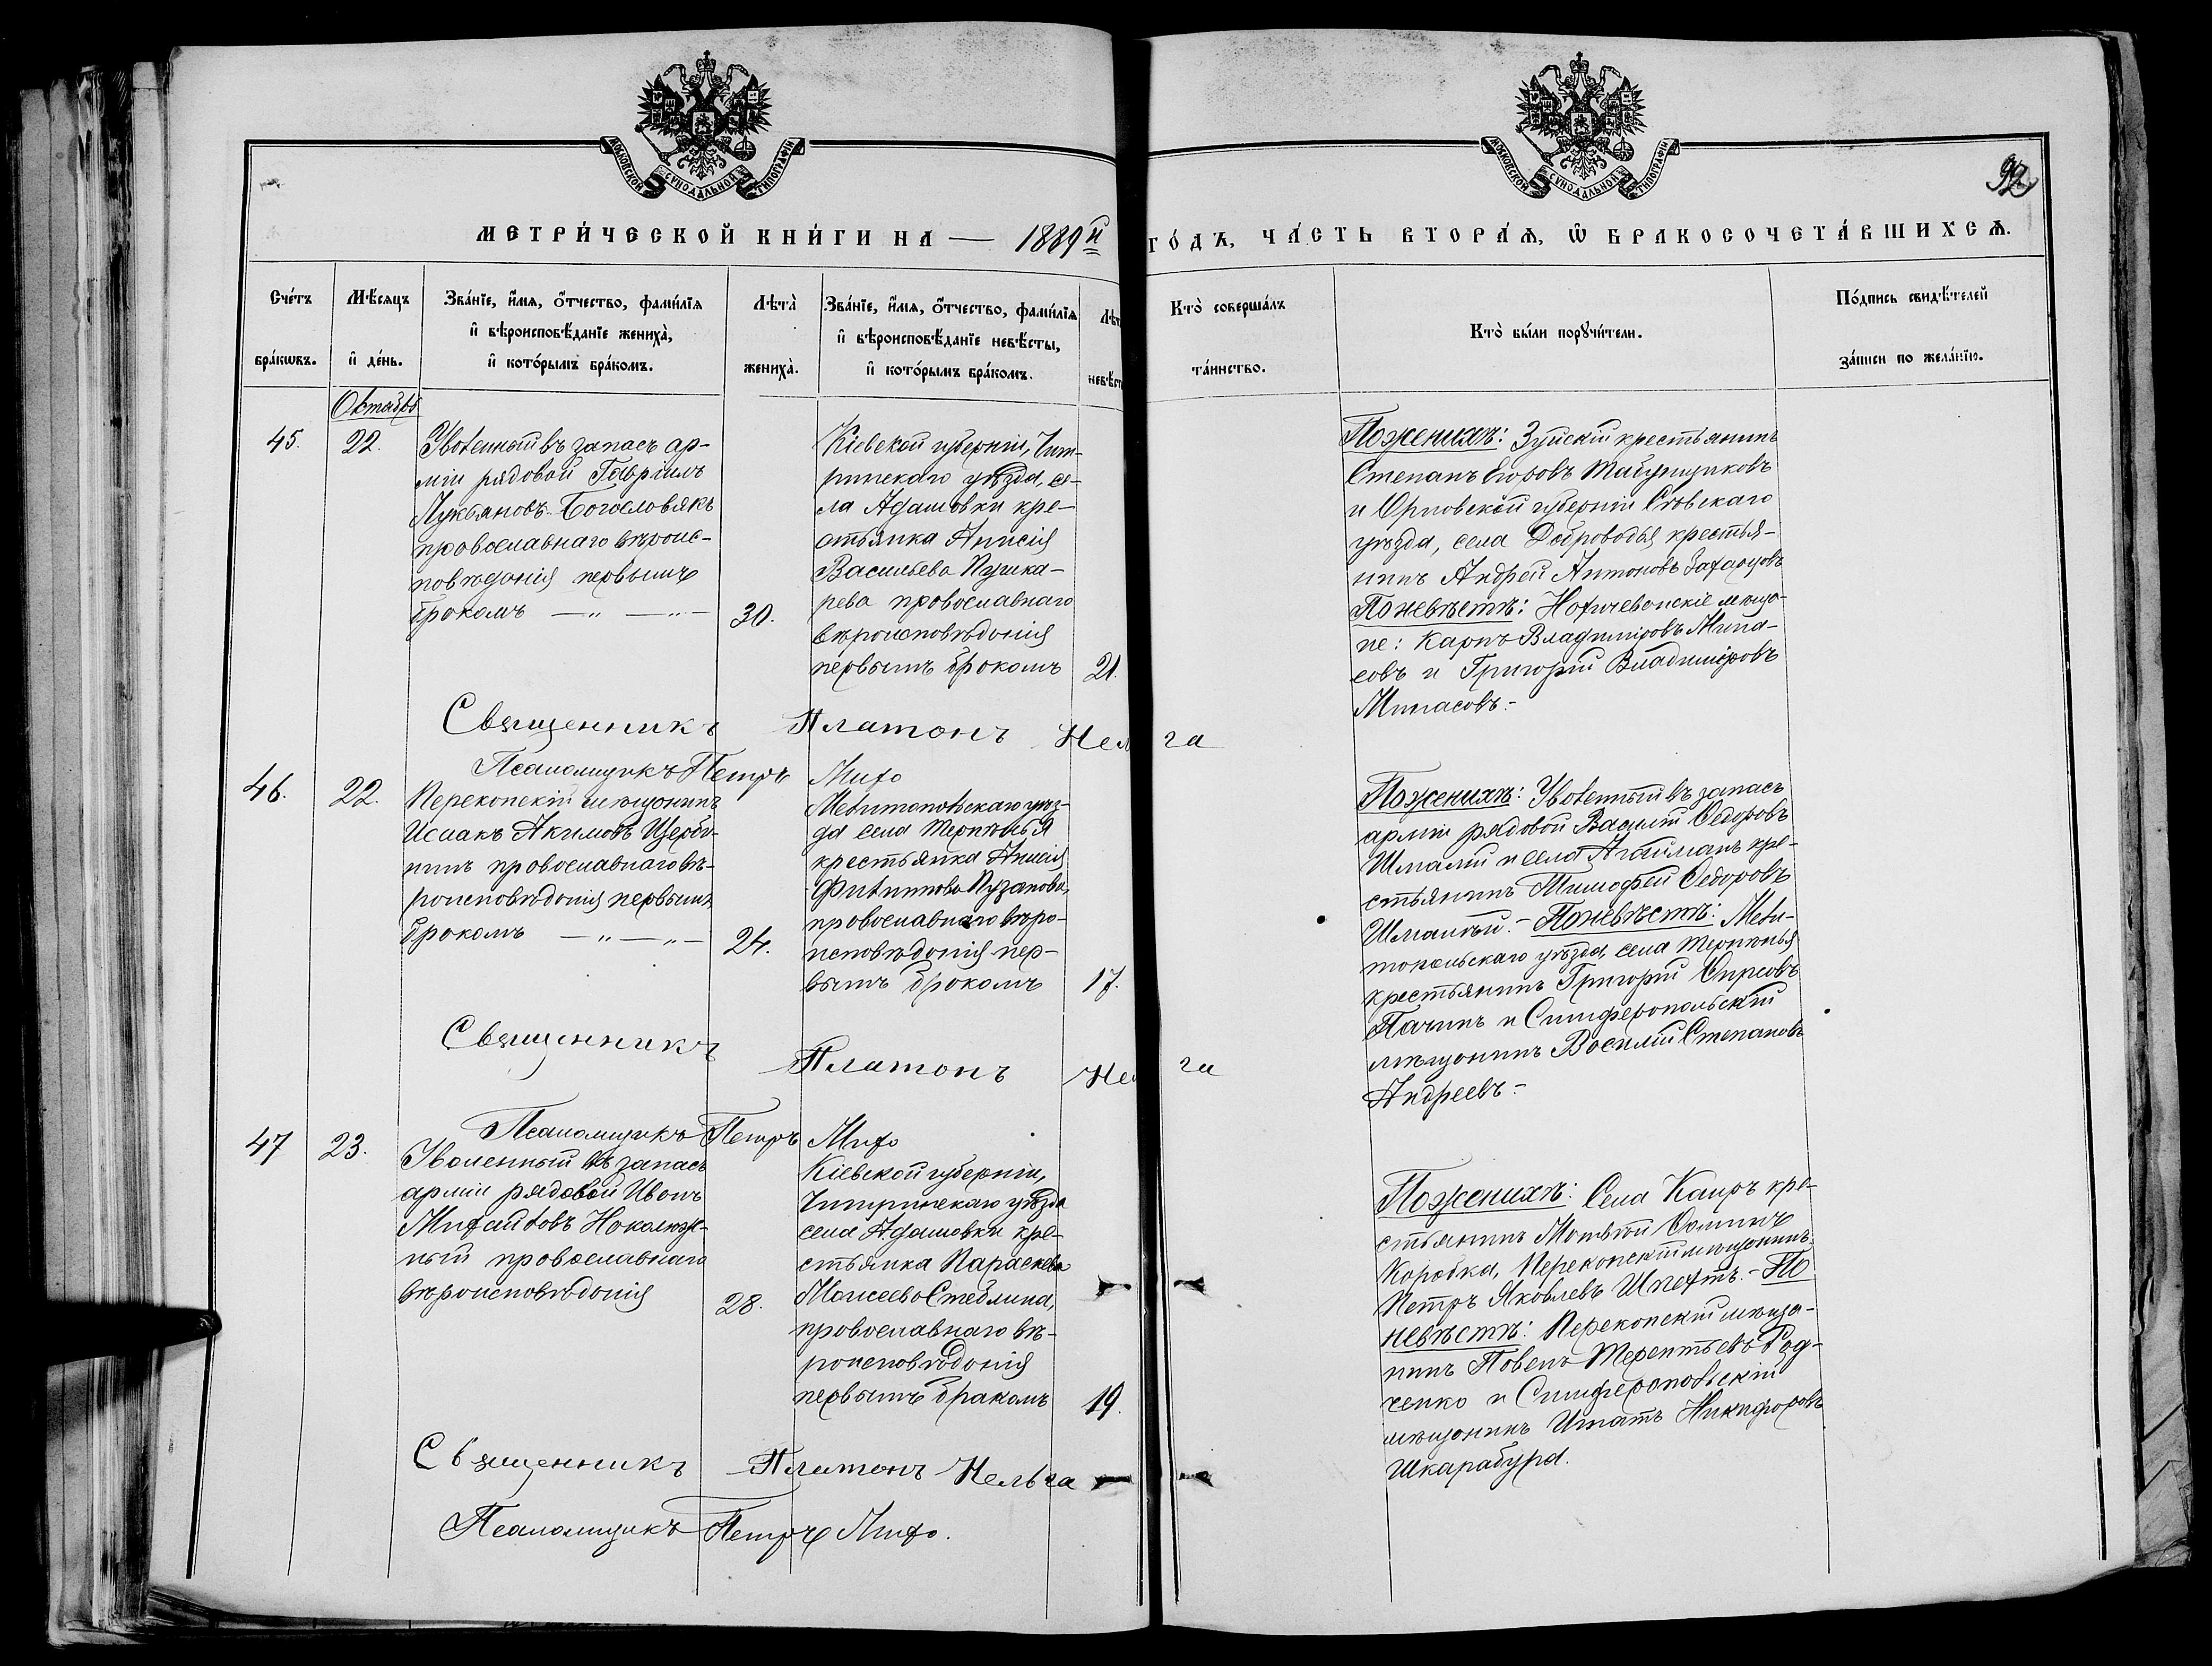 МОСКОВСКОЙ СѴНОДАЛЬНОЙ ТИПОГРАФІИ
МОСКОВСКОЙ СѴНОДАЛЬНОЙ ТИПОГРАФІИ
92
МЕТРИ́ЧЕСКОЙ КНИ́ГИ НА — 1889й
ГО́ДЪ, ЧА́СТЬ ВТОРА́Ѧ, Ѽ БРАКОСОЧЕТА́ВШИХСѦ.
Сче́тъ бра́кѡвъ.
Мѣ́сяцъ и҆ де́нь.
Зва́нїе, и҆́мя, ѻ҆́тчество, фами́лїя
и҆ вѣроисповѣ́данїе жениха̀,
и҆ кото́рымъ бра́комъ.
Лѣта̀ жениха̀.
Зва́нїе, и҆́мя, ѻ҆́тчество, фами́лїя
и҆ вѣроисповѣ́данїе невѣ́сты,
и҆ кото́рымъ бра́комъ.
Кто̀ соверша́лъ
та́инство.
Кто̀ бы́ли порꙋчи́тели.
По́дпись свидѣ́телей
за́писи по жела́нїю.
Октабрь
45.
22.
Уволенный въ запасъ ар-
міи рядовой Гавріилъ
Лукьяновъ Богословякъ
православнаго вѣроис-
повѣданія первымъ
бракомъ — " — " —
30.
Кіевской губерніи, Чиги-
ринскаго уѣзда, се-
ла Адамовки кре-
стьянка Анисія
Васильева Пушка-
рева православнаго
вѣроисповѣданія
первымъ бракомъ
21.
По женихѣ: Зуйскій крестьянинъ
Степанъ Егоровъ Табунщиковъ
и Орловской губерніи Сѣвскаго
уѣзда, села Доброводья крестья-
нинъ Андрей Антоновъ Захарцовъ
По невѣстѣ: Нахичеванскіе мѣща-
не: Карпъ Владиміровъ Мина-
совъ и Григорій Владиміровъ
Минасовъ.-
Священникъ Платонъ Нельга
Псаломщикъ Петръ Михо
46.
22.
Перекопскій мѣщанинъ
Исаакъ Акимовъ Щерба-
нинъ православнаго вѣ-
роисповѣданія первымъ
бракомъ — " — " —
24.
Мелитопольскаго уѣз-
да села Терпѣнья
крестьянка Анисія
Филиппова Пузанова,
православнаго вѣро-
исповѣданія пер-
вымъ бракомъ
17.
По женихѣ: Уволенный въ запасъ
арміи рядовой Василій Ѳедоровъ
Шмалій и села Агайманъ кре-
стьянинъ Тимофей Ѳедоровъ
Шмалый.- По невѣстѣ: Мели-
топольскаго уѣзда, села Терпѣнья
крестьянинъ Григорій
и Симферопольскій
мѣщанинъ Василій Степановъ
Андреевъ.-
Священникъ Платонъ Нельга
Псаломщикъ Петръ Михо
47
23.
Уволенный въ запасъ
арміи рядовой Иванъ
Михайловъ Наколюж-
ный православнаго
вѣроисповѣданія
28.
Кіевской губерніи,
Чигиринскаго уѣзда
села Адамовки кре-
стьянка Параскева
Моисеева Стеблина,
православнаго вѣ-
роисповѣданія
первымъ бракомъ
19.
По женихѣ: Села Каиръ кре-
стьянинъ Матвѣй Ѳоминъ
Коробка, Перекопскій мѣщанинъ
Петръ Яковлевъ Шпехтъ.- По
невѣстѣ: Перекопскій мѣща-
нинъ Павелъ Терентьевъ Рад-
ченко и Симферопольскій
мѣщанинъ Игнатъ Никифоровъ
Шкарабура.
Священникъ Платонъ Нельга
Псаломщикъ Петръ Михо.